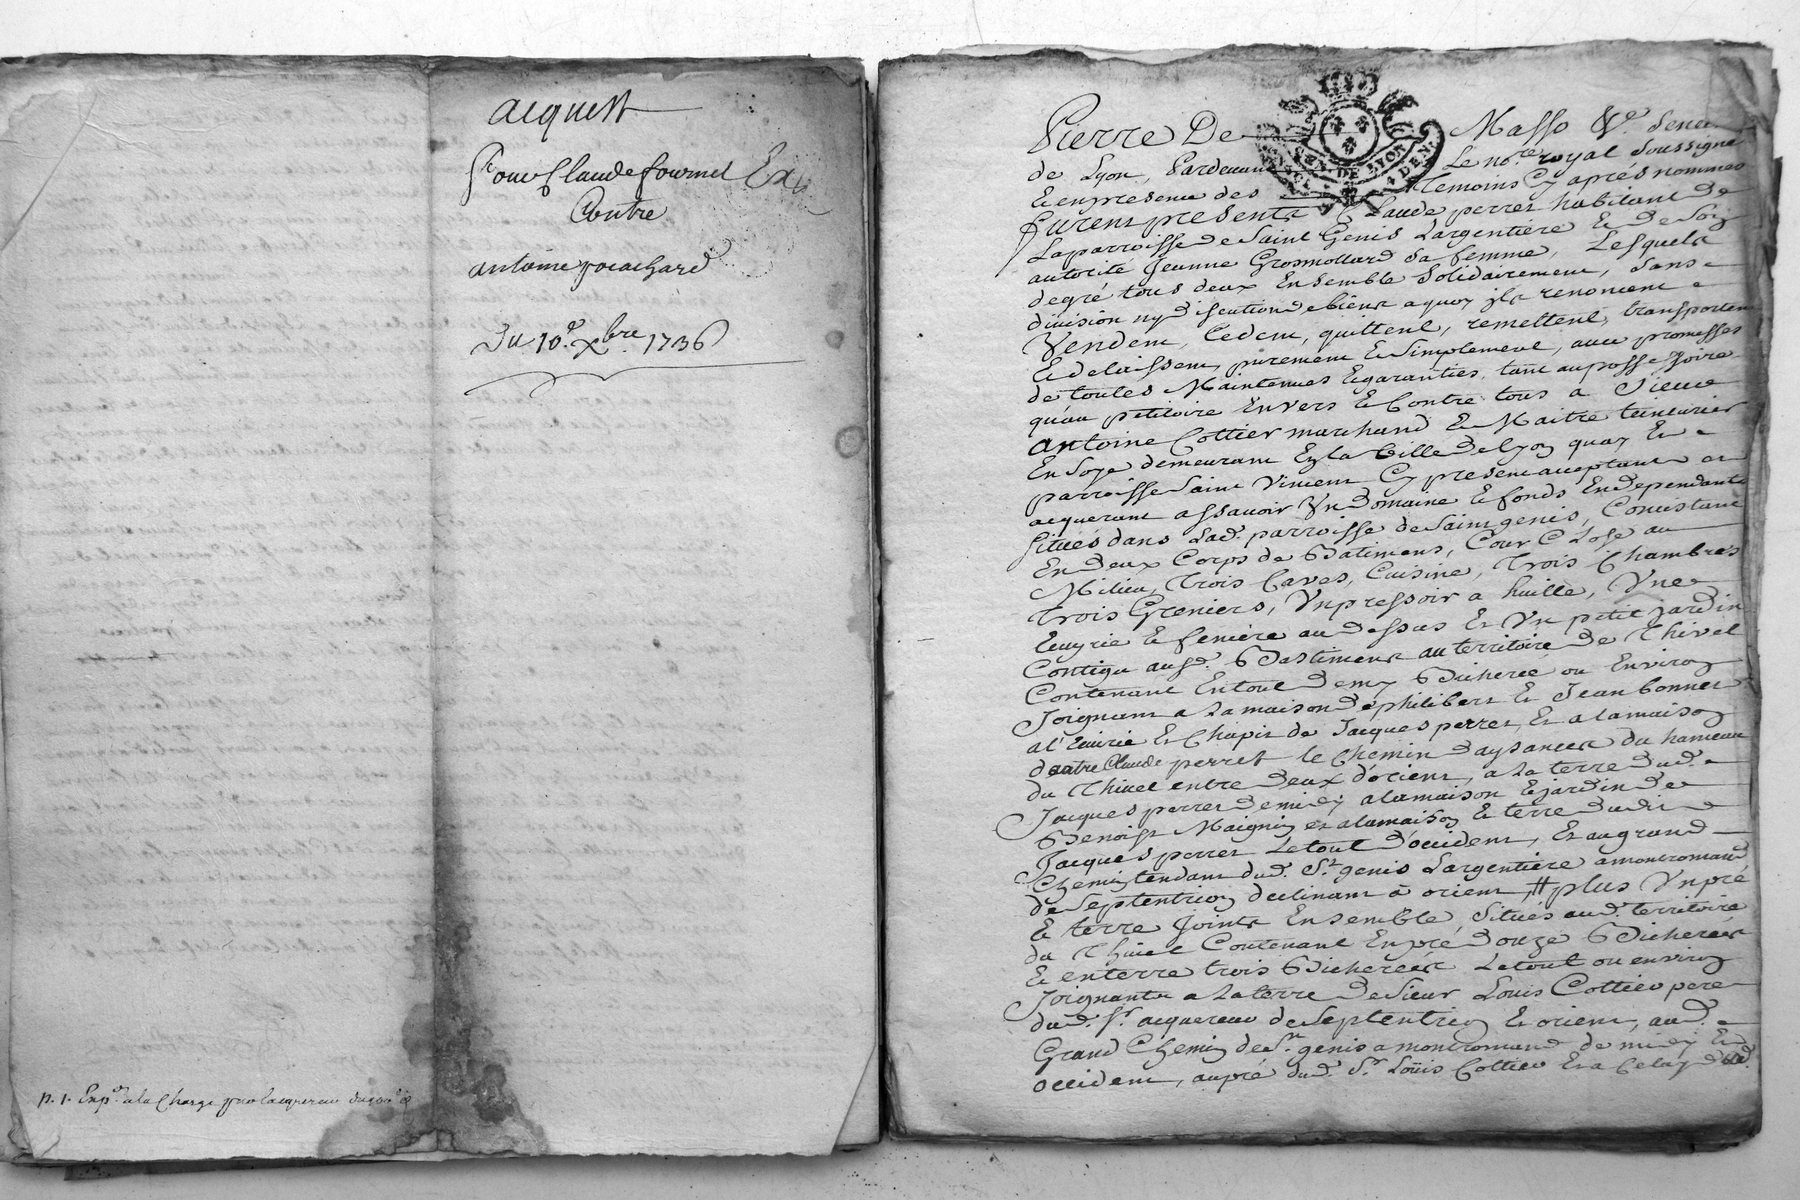 acquest
pour Claude fournel
Contre
antoine
Du 10.e xbre. 1736
p. 1. a la Charge
Pierre De Masso
GEN DE LYON
DEN.
de Lyon, Pardevant Le no.re royal Soussigné
Et en presence des Temoins Cy aprés nommés
furent presents Claude perret habitant de
La parroisse de Saint Genis Largentiere Et de Son
autorité Jeanne Grosmollard Sa femme, Lesquels
de gré tous deux Ensemble Solidairement, Sans
division ny discution de biens a quoy ils renoncent
Vendent, Cedent, quittent, remettent, transportent
Et delaissent, purement Et Simplement, avec promesses
de toutes Maintenues Et garanties tant au possessoire
qu'au petitoire Envers Et Contre tous a Sieur
Antoine Cottier marchand Et Maitre teinturier
En Soye demeurant En la Ville de Lyon quay Et
parroisse Saint Vincent Cy present acceptant et
acquerant assavoir Un Domaine Et fonds En dependants
Situés dans Lad. parroisse de Saint genis, Consistant
En deux Corps de Batimens, Cour Close au
Milieu, Trois Caves, Cuisine, Trois Chambres
Trois Greniers, Un pressoir a huille, Une
Ecuyrie Et feniere au Dessus Et Un petit jardin
Contigu ausd. Bastiments au territoire De Thivel
Contenant En tout Demy Bicherée ou Environ
Joignant a La maison De philibert Et Jean bonnet
a l'Ecurie Et Chapit de Jacques perret, Et a la maison
d'autre Claude perret le Chemin d'aysances du hameau
du Thivel entre deux d'orient, a La terre Dud.
Jacques perret De midy a la maison Et jardin De
Benoist Maignin et a la maison Et terre Dudit
Jacques perret Le tout D'occident, Et au grand
Chemin tendant dud. St. genis Largentiere a montromand
de Septentrion declinant à orient, # plus Un pré
Et terre Joints Ensemble, Situés aud. territoire
du Thivel Contenant En pré Douze Bicherées
Et en terre trois Bicherées Le tout ou environ
Joignants a La terre De Sieur Louis Cottier pere
dud. Sr. acquereur de Septentrion Et orient, aud.
Grand Chemin de St. genis a montromand de midy Et
occident, au pré dud. Sr. Loüis Cottier Et a Celuy